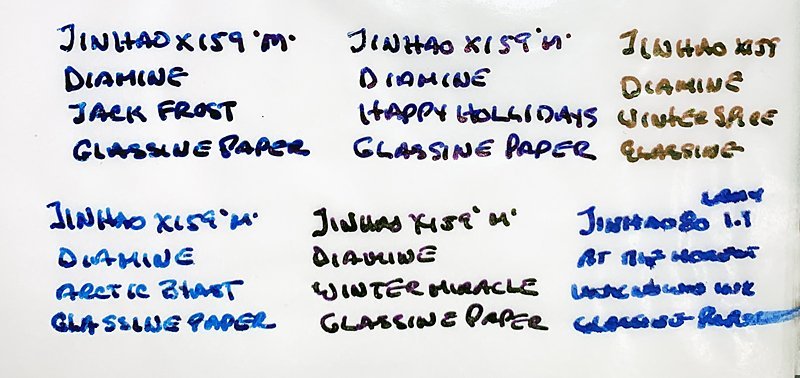 JINHAO X159 "M"
DIAMINE
JACK FROST
GLASSINE PAPER
JINHAO X159 "M"
DIAMINE
HAPPY HOLLIDAYS
GLASSINE PAPER
JINHAO X159
DIAMINE
WINTER SPICE
GLASSINE
JINHAO X159 "M"
DIAMINE
ARCTIC BLAST
GLASSINE PAPER
JINHAO X159 "M"
DIAMINE
WINTER MIRACLE
GLASSINE PAPER
JINHAO 80 1.1
INK
GLASSINE PAPER